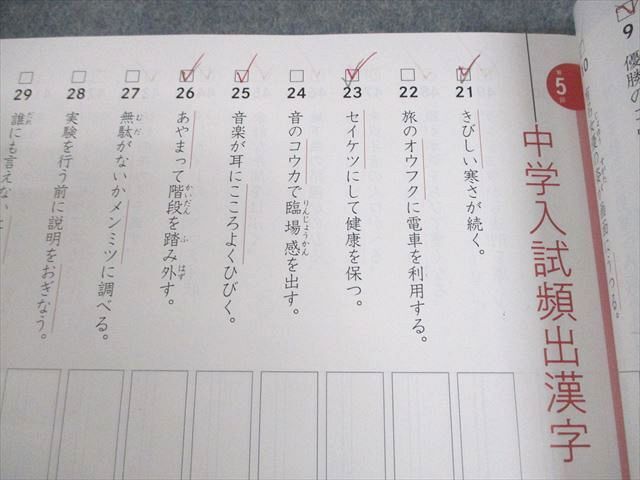 9
優勝の
10
第5回
中学入試頻出漢字
21
きびしい寒さが続く。
22
旅のオウフクに電車を利用する。
23
セイケツにして健康を保つ。
24
音のコウカで臨場感を出す。
りんじょうかん
25
音楽が耳にこころよくひびく。
26
あやまって階段を踏み外す。
かいだん
ふ
はず
27
無駄がないかメンミツに調べる。
むだ
28
実験を行う前に説明をおぎなう。
29
誰にも言えない
だれ